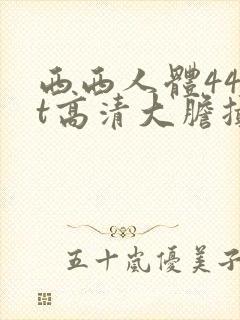 西西人體44
t高清大膽
五十嵐優美子